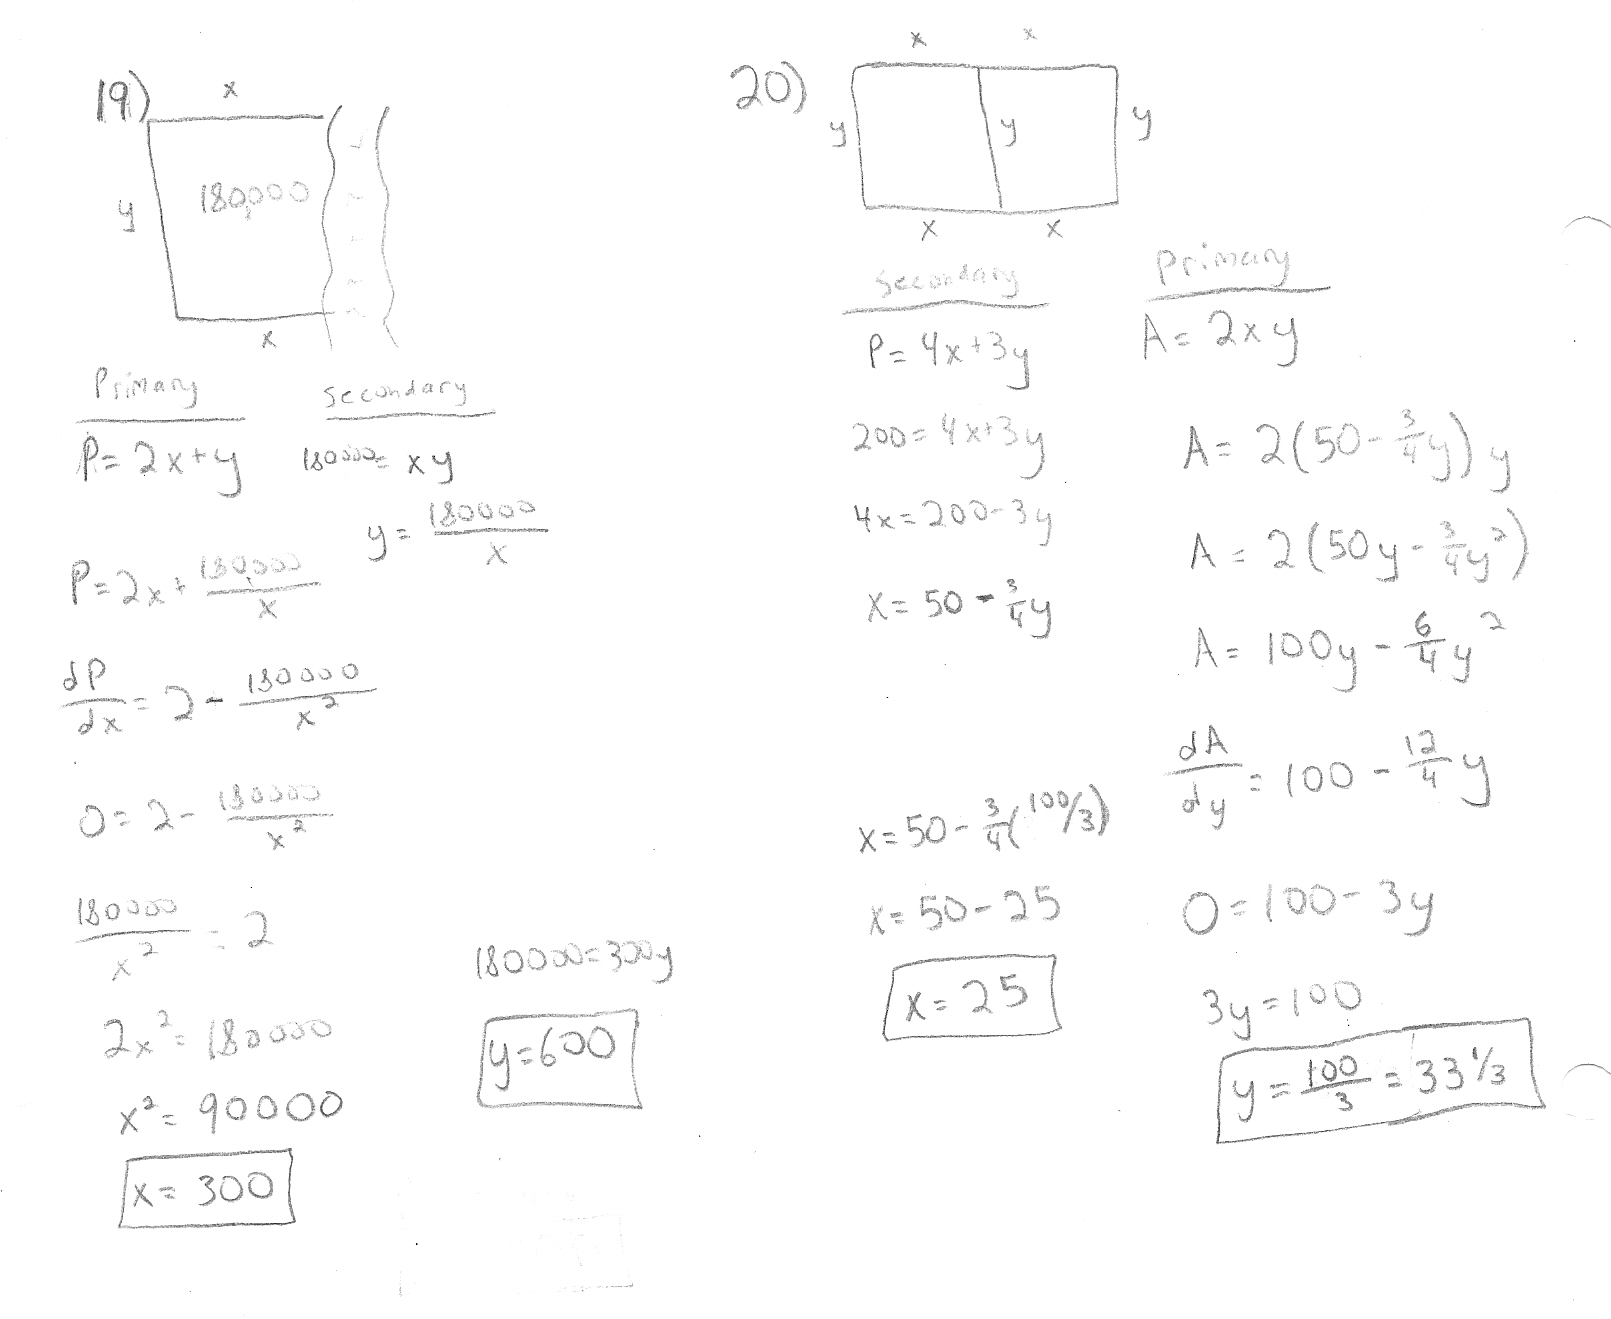 19)
x
y
180,000
x
Primary
Secondary
P = 2x + y
180000 = xy
y = 180000/x
P = 2x + 180,000/x
dP/dx = 2 - 180000/x²
0 = 2 - 180000/x²
180000/x² = 2
2x² = 180000
x² = 90000
x = 300
180000 = 300y
y = 600
20)
x x
y y y
x x
Secondary
Primary
P = 4x + 3y
A = 2xy
200 = 4x + 3y
4x = 200 - 3y
x = 50 - 3/4 y
A = 2(50 - 3/4 y) y
A = 2(50y - 3/4 y²)
A = 100y - 6/4 y²
dA/dy = 100 - 12/4 y
0 = 100 - 3y
3y = 100
y = 100/3 = 33 1/3
x = 50 - 3/4 (100/3)
x = 50 - 25
x = 25